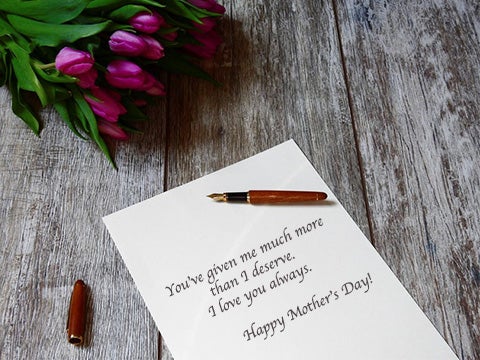 You've given me much more
than I deserve.
I love you always.
Happy Mother's Day!